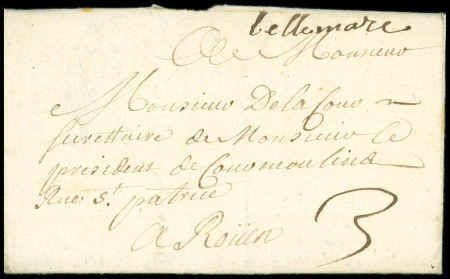 bellemare
A Monsieur
Monsieur Delacour
secrettaire de Monsieur le
president de Courmoulind
Rue St. patrice
A Roüen
3